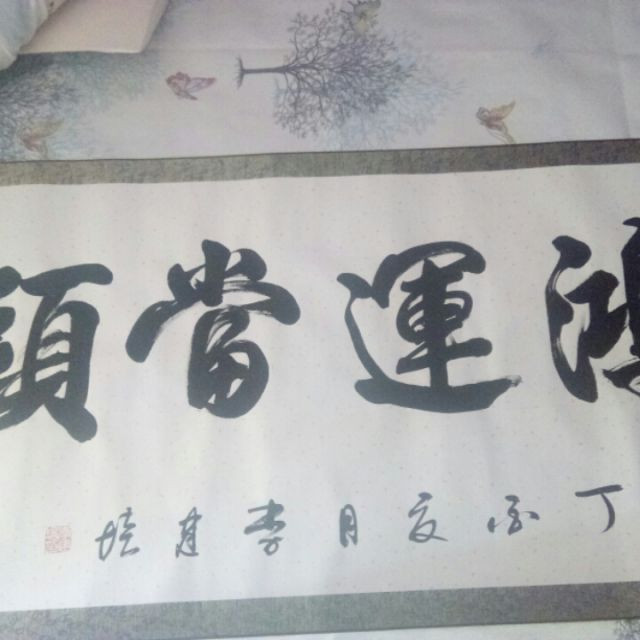 鴻運當頭
丁酉夏月李建培